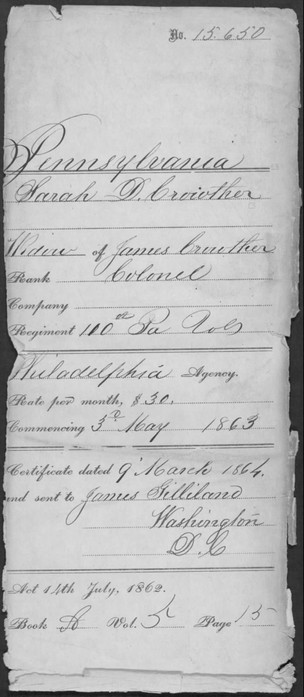 No. 15.650
Pennsylvania
Sarah D. Crowther
Widow of James Crowther
Rank Colonel
Company
Regiment 110th Pa Vols
Philadelphia Agency.
Rate per month, $30.
Commencing 3rd May 1863
Certificate dated 9' March 1864.
and sent to James Gilliland
Washington
D.C
Act 14th July, 1862.
Book A Vol. 5 Page 15